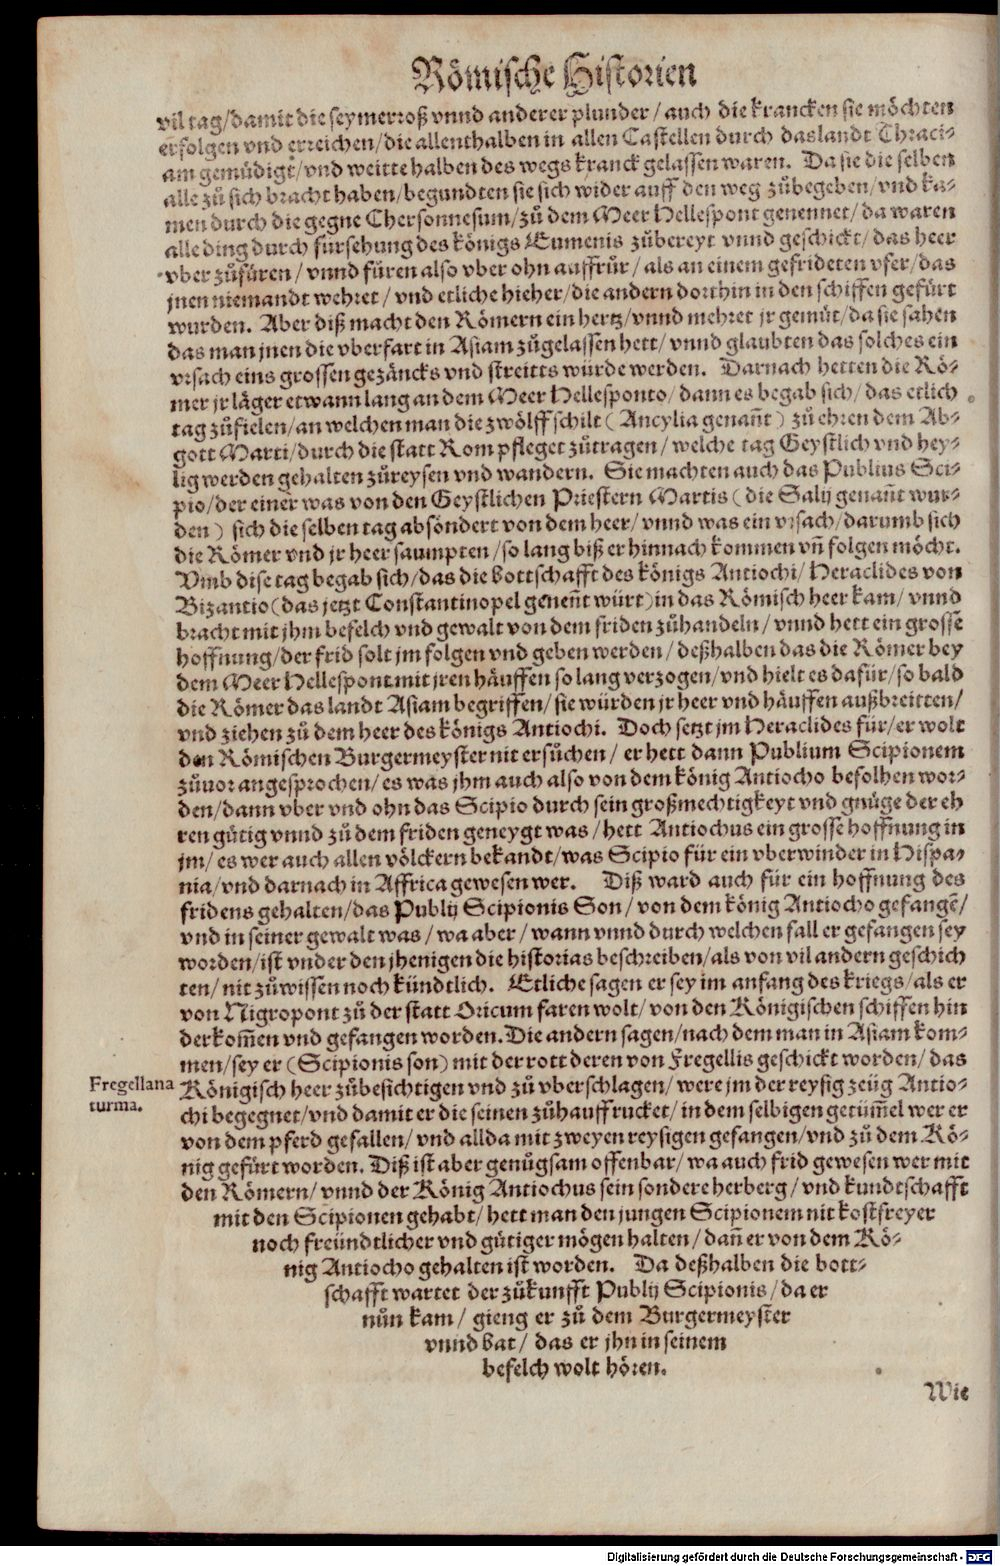 Römische Historien
vil tag/damit die seymerroß vnnd anderer plunder/auch die krancken sie möchten
erfolgen vnd erreichen/die allenthalben in allen Castellen durch das landt Thraci-
am gemüdigt/vnd weitte halben des wegs kranck gelassen waren. Da sie die selben
alle zů sich bracht haben/begundten sie sich wider auff den weg zůbegeben/vnd ka-
men durch die gegne Chersonnesum/zů dem Meer Hellespont genennet/da waren
alle ding durch fürsehung des königs Eumenis zůbereyt vnnd geschickt/das heer
vber zůfüren/vnnd füren also vber ohn auffrůr/als an einem gefrideten vfer/das
jnen niemandt wehret/vnd etliche hieher/die andern dorthin in den schiffen gefürt
wurden. Aber diß macht den Römern ein hertz/vnnd mehret jr gemüt/da sie sahen
das man jnen die vberfart in Asiam zůgelassen hett/vnnd glaubten das solches ein
vrsach eins grossen gezäncks vnd streitts würde werden. Darnach hetten die Rö-
mer jr läger etwann lang an dem Meer Hellesponto/dann es begab sich/das etlich
tag zůfielen/an welchen man die zwölff schilt (Ancylia genañt) zů ehren dem Ab-
gott Marti/durch die statt Rom pfleget zůtragen/welche tag Geystlich vnd hey-
lig werden gehalten zůreysen vnd wandern. Sie machten auch das Publius Sci-
pio/der einer was von den Geystlichen Priestern Martis (die Salij genañt wur-
den) sich die selben tag absöndert von dem heer/vnnd was ein vrsach/darumb sich
die Römer vnd jr heer saumpten/so lang biß er hinnach kommen vñ folgen möcht.
Vmb dise tag begab sich/das die bottschafft des königs Antiochi/Heraclides von
Bizantio (das jetzt Constantinopel geneñt würt) in das Römisch heer kam/vnnd
bracht mit jhm befelch vnd gewalt von dem friden zůhandeln/vnnd hett ein grosse
hoffnung/der frid solt jm folgen vnd geben werden/deßhalben das die Römer bey
dem Meer Hellespont mit jren häuffen so lang verzogen/vnd hielt es dafür/so bald
die Römer das landt Asiam begriffen/sie würden jr heer vnd häuffen außbreitten/
vnd ziehen zů dem heer des königs Antiochi. Doch setzt jm Heraclides für/er wolt
den Römischen Burgermeyster nit ersůchen/er hett dann Publium Scipionem
zůuor angesprochen/es was jhm auch also von dem könig Antiocho befolhen wor-
den/dann vber vnd ohn das Scipio durch sein großmechtigkeyt vnd gnůge der eh
ren gütig vnnd zů dem friden geneygt was/hett Antiochus ein grosse hoffnung in
jm/es wer auch allen völckern bekandt/was Scipio für ein vberwinder in Hispa-
nia/vnd darnach in Affrica gewesen wer. Diß ward auch für ein hoffnung des
fridens gehalten/das Publij Scipionis Son/von dem könig Antiocho gefangē/
vnd in seiner gewalt was/wa aber/wann vnnd durch welchen fall er gefangen sey
worden/ist vnder den jhenigen die historias beschreiben/als von vil andern geschich
ten/nit zůwissen noch kündtlich. Etliche sagen er sey im anfang des kriegs/als er
von Nigropont zů der statt Oricum faren wolt/von den Königischen schiffen hin
derkom̃en vnd gefangen worden. Die andern sagen/nach dem man in Asiam kom-
men/sey er (Scipionis son) mit der rott deren von Fregellis geschickt worden/das
Fregellana
turma.
Königisch heer zůbesichtigen vnd zů vberschlagen/were jm der reysig zeüg Antio-
chi begegnet/vnd damit er die seinen zůhauff rucket/in dem selbigen getüm̃el wer er
von dem pferd gefallen/vnd allda mit zweyen reysigen gefangen/vnd zů dem Kö-
nig gefürt worden. Diß ist aber genůgsam offenbar/wa auch frid gewesen wer mit
den Römern/vnnd der König Antiochus sein sondere herberg/vnd kundtschafft
mit den Scipionen gehabt/hett man den jungen Scipionem nit kostfreyer
noch freündtlicher vnd gütiger mögen halten/dañ er von dem Kö-
nig Antiocho gehalten ist worden. Da deßhalben die bott-
schafft wartet der zůkunfft Publij Scipionis/da er
nůn kam/gieng er zů dem Burgermeyster
vnnd bat/das er jhn in seinem
befelch wolt hören.
Wie
Digitalisierung gefördert durch die Deutsche Forschungsgemeinschaft - DFG